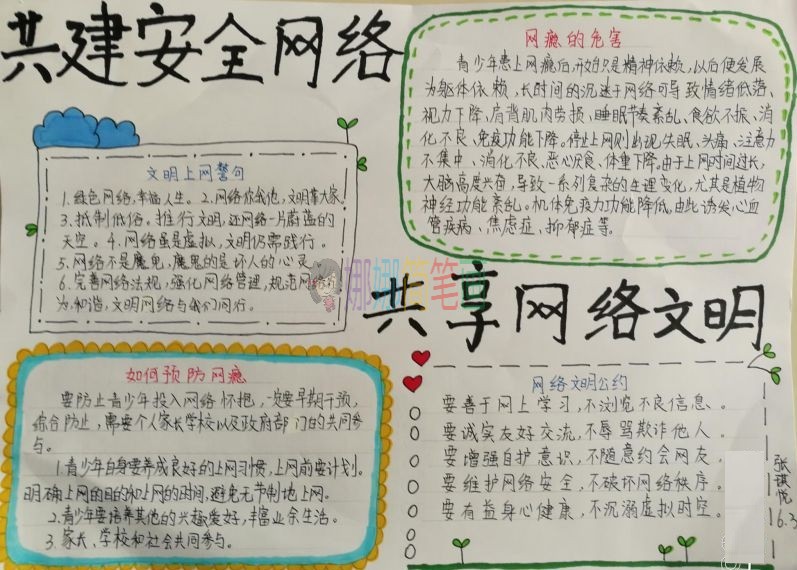 共建安全网络
网瘾的危害
青少年患上网瘾后,开始只是精神依赖,以后便发展
为躯体依赖,长时间的沉迷于网络可导致情绪低落、
视力下降、肩背肌肉劳损、睡眠节奏紊乱、食欲不振、消
化不良、免疫功能下降。停止上网则出现失眠、头痛、注意力
不集中、消化不良、恶心厌食、体重下降。由于上网时间过长,
大脑高度兴奋,导致一系列复杂的生理变化,尤其是植物
神经功能紊乱。机体免疫力功能降低。由此诱发心血
管疾病、焦虑症、抑郁症等。
文明上网警句
1.绿色网络,幸福人生。2.网络你我他,文明靠大家。
3.抵制低俗。推行文明,还网络一片蔚蓝的
天空。4.网络虽是虚拟,文明仍需践行。
5.网络不是魔鬼,魔鬼的是坏人的心灵。
6.完善网络法规,强化网络管理,规范网络行
为,和谐,文明网络与我们同行。
娜娜简笔
共享网络文明
如何预防网瘾
要防止青少年投入网络怀抱,一定要早期干预,
综合防止,需要个人家长学校以及政府部门的共同参
与。
1.青少年自身要养成良好的上网习惯,上网前要计划。
明确上网的目的和上网的时间、避免无节制地上网。
2.青少年要培养其他的兴趣爱好,丰富业余生活。
3.家长、学校和社会共同参与。
网络文明公约
要善于网上学习,不浏览不良信息。
要诚实友好交流,不辱骂欺诈他人。
要增强自护意识,不随意约会网友。
要维护网络安全,不破坏网络秩序。
要有益身心健康,不沉溺虚拟时空。
张琪悦
6.3